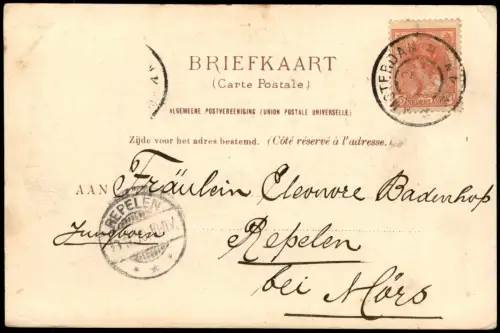 BRIEFKAART
(Carte Postale)
ALGEMEENE POSTVEREENIGING (UNION POSTALE UNIVERSELLE)
Zijde voor het adres bestemd. (Côté réservé à l'adresse.)
AAN Fräulein Eleonore Badenhop
Jungborn Repelen
bei Mörs
AMSTERDAM
REPELEN